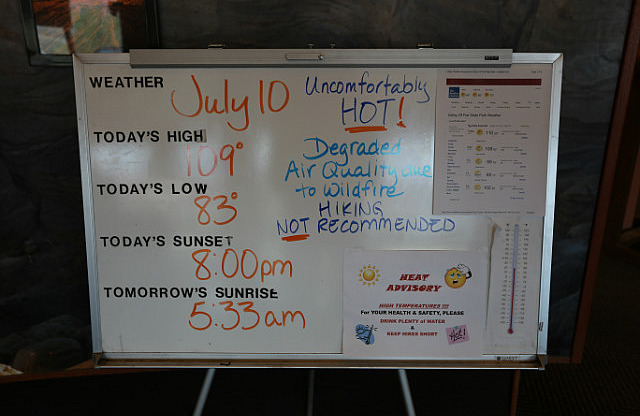 WEATHER
July 10
TODAY'S HIGH
109°
TODAY'S LOW
83°
TODAY'S SUNSET
8:00pm
TOMORROW'S SUNRISE
5:33am
Uncomfortably
HOT!
Degraded
Air Quality due
to Wildfire
HIKING
NOT RECOMMENDED
Valley Of Fire State Park Weather
HEAT
ADVISORY
HIGH TEMPERATURES !!!
For YOUR HEALTH & SAFETY, PLEASE
DRINK PLENTY of WATER
&
KEEP HIKES SHORT
Hot!